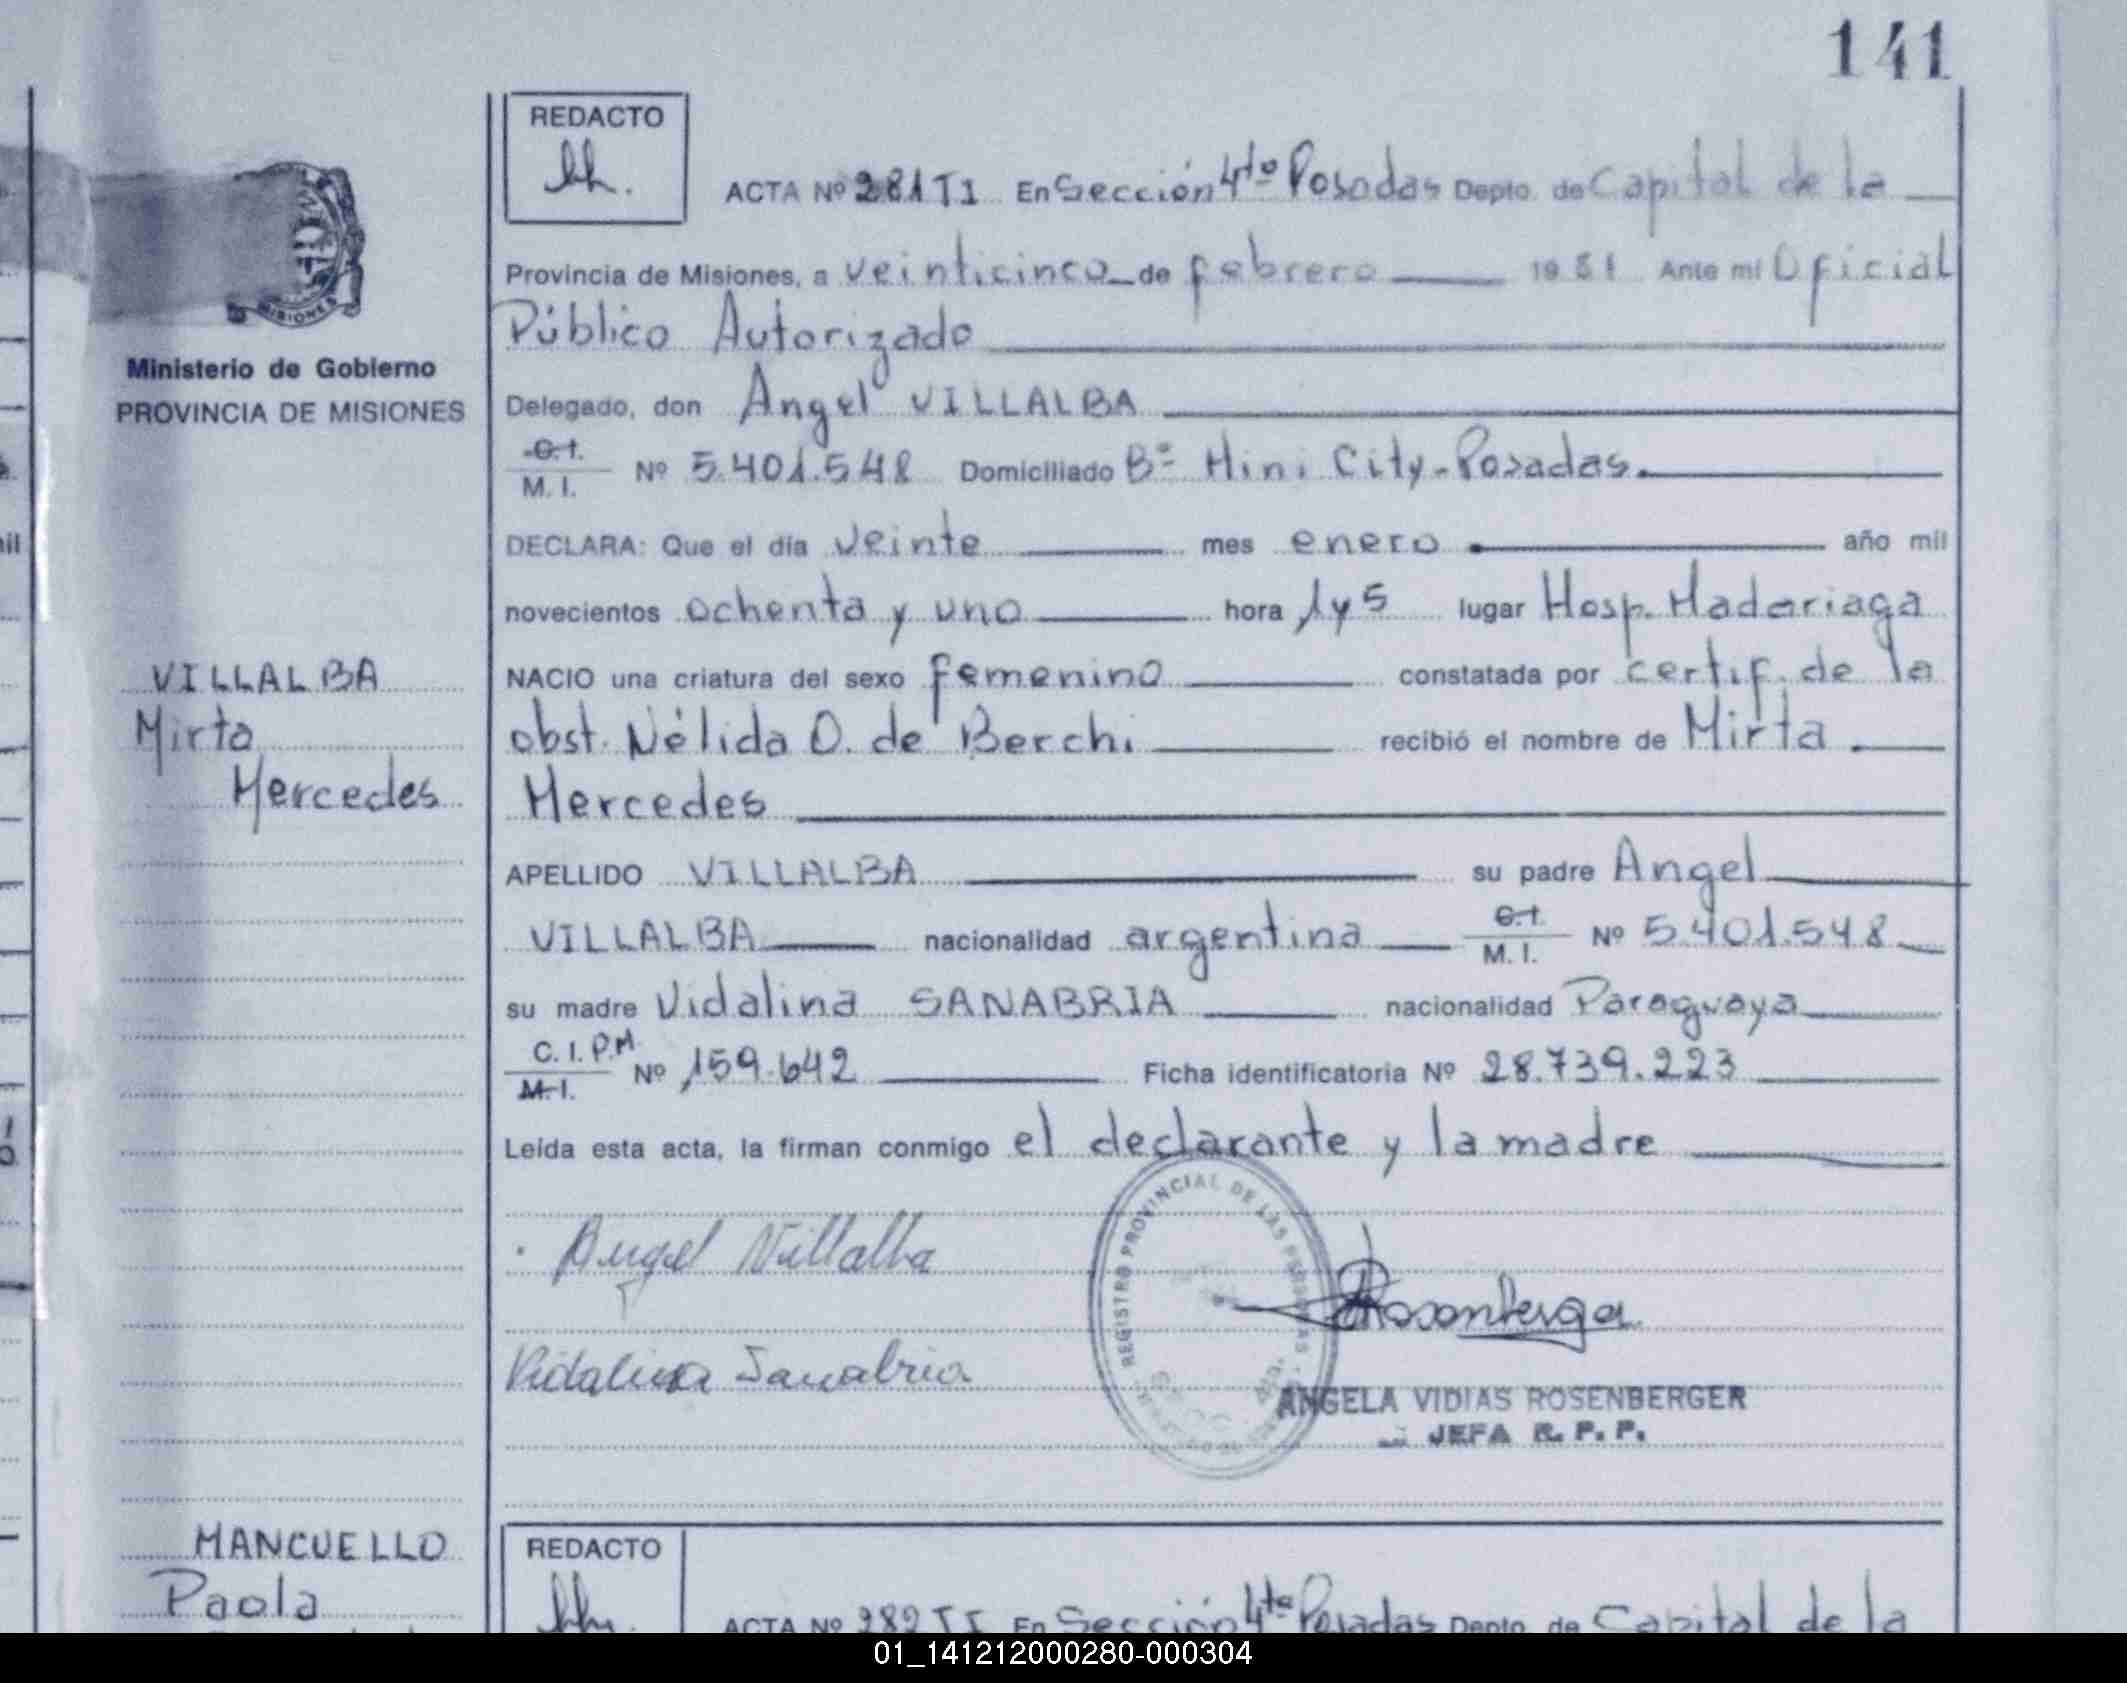 141
REDACTO
ACTA Nº 281 TI En Sección 4ta Posadas Depto. de Capital de la
Provincia de Misiones, a veinticinco de febrero 1981 Ante mí Oficial
Público Autorizado
Delegado, don Angel VILLALBA
C.I.
M. I. Nº 5.401.548 Domiciliado Bº Mini City-Posadas.
DECLARA: Que el día veinte mes enero año mil
novecientos ochenta y uno hora 1 y 5 lugar Hosp. Madariaga
NACIO una criatura del sexo femenino constatada por certif. de la
obst. Nélida O. de Berchi recibió el nombre de Mirta
Mercedes
APELLIDO VILLALBA su padre Angel
VILLALBA nacionalidad argentina C.I. M. I. Nº 5.401.548
su madre Vidalina SANABRIA nacionalidad Paraguaya
C. I. P.M.
M.I. Nº 159.642 Ficha identificatoria Nº 28.739.223
Leída esta acta, la firman conmigo el declarante y la madre
Angel Villalba
Vidalina Sanabria
REGISTRO PROVINCIAL DE LAS PERSONAS
Rosenberger
ANGELA VIDIAS ROSENBERGER
JEFA R. P. P.
MISIONES
Ministerio de Gobierno
PROVINCIA DE MISIONES
VILLALBA
Mirta
Mercedes
MANCUELLO
Paola
REDACTO
ACTA Nº 282 TI En Sección 4ta Posadas Depto. de Capital de la
01_141212000280-000304